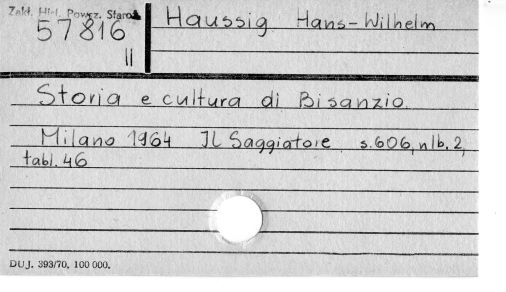 Zakł. Hist. Powsz. Staroż.
57816
II
Haussig Hans-Wilhelm
Storia e cultura di Bisanzio.
Milano 1964 IL Saggiatore s.606, nlb. 2,
tabl. 46
DUJ. 393/70. 100 000.